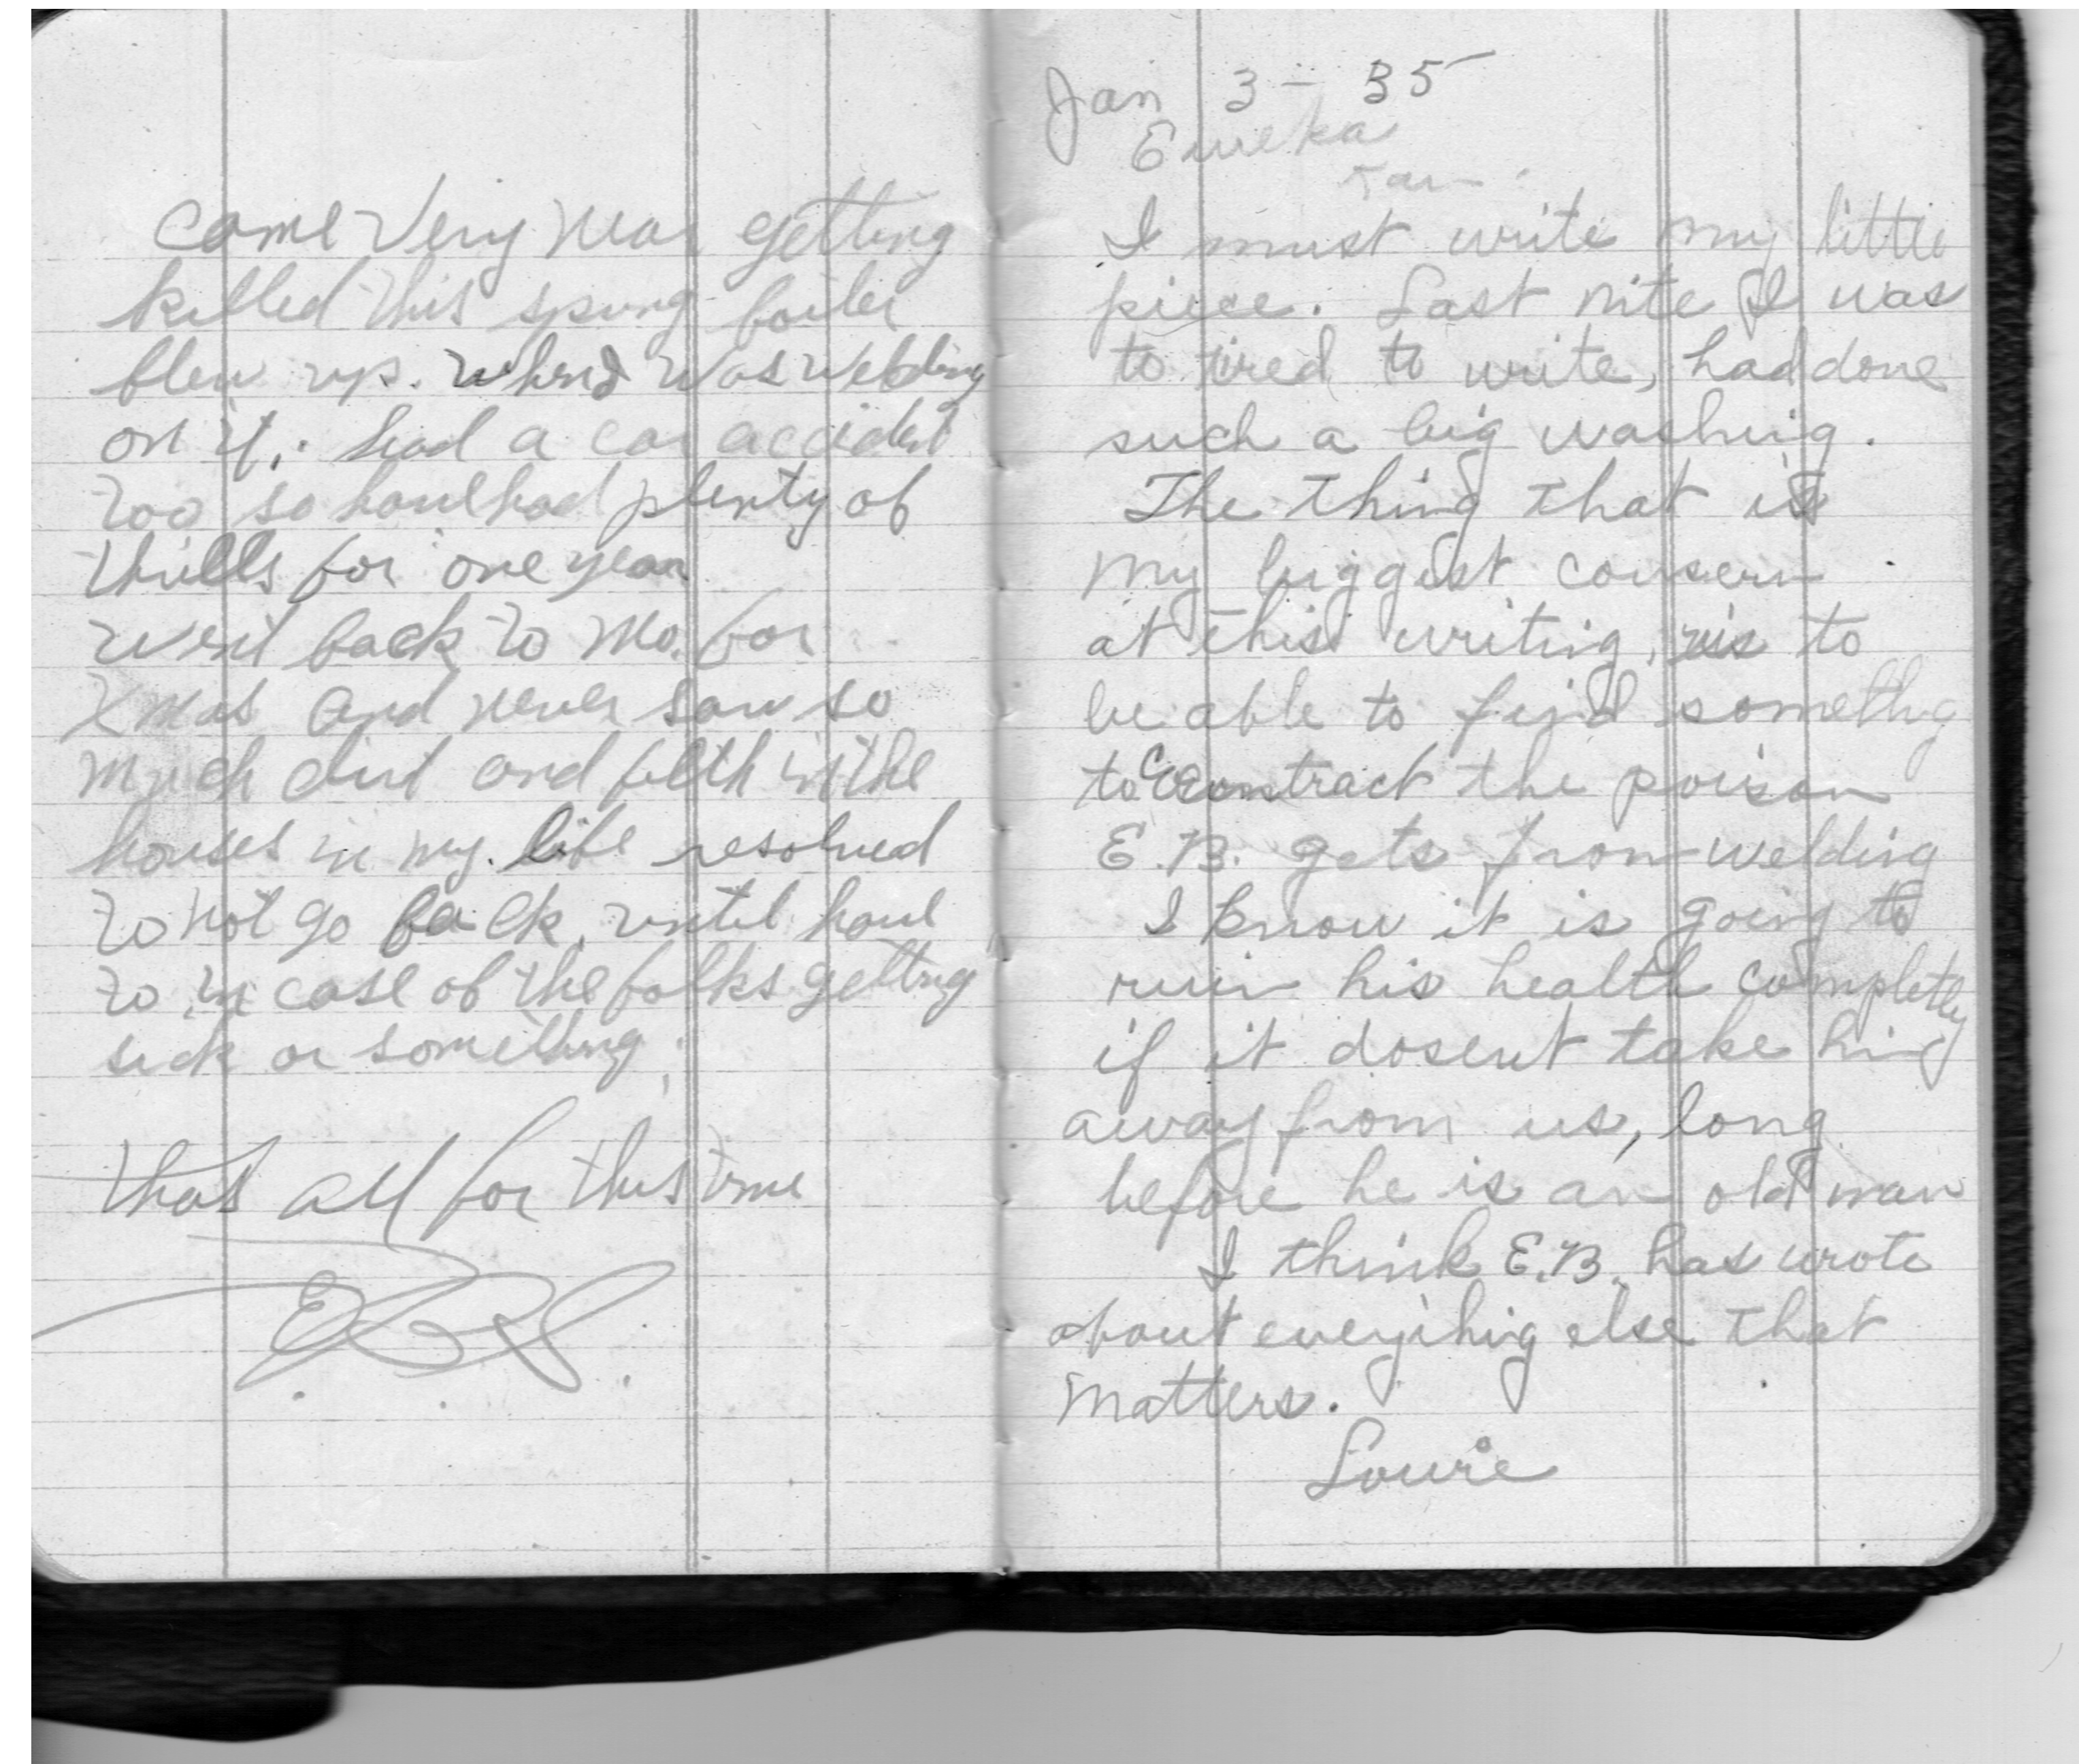 Came Very Near getting
killed this spring boiler
blew up. when I was welding
on it,. had a car accident
too so have had plenty of
thrills for one year
went back to Mo. for
Xmas and never saw so
much dirt and filth in the
houses in my life resolved
to not go back, until have
to in case of the folks getting
sick or something.
thats all for this time
Jan 3 - 35
Eureka
Kan.
I must write my little
piece. Last nite I was
to tired to write, had done
such a big washing.
The thing that is
my biggest consern
at this writing, is to
be able to find somethg
to contract the poison
E.B. gets from welding
I know it is going to
ruin his health completly
if it dosent take him
away from us, long
before he is an old man
I think E.B. has wrote
about everything else that
matters.
Louie